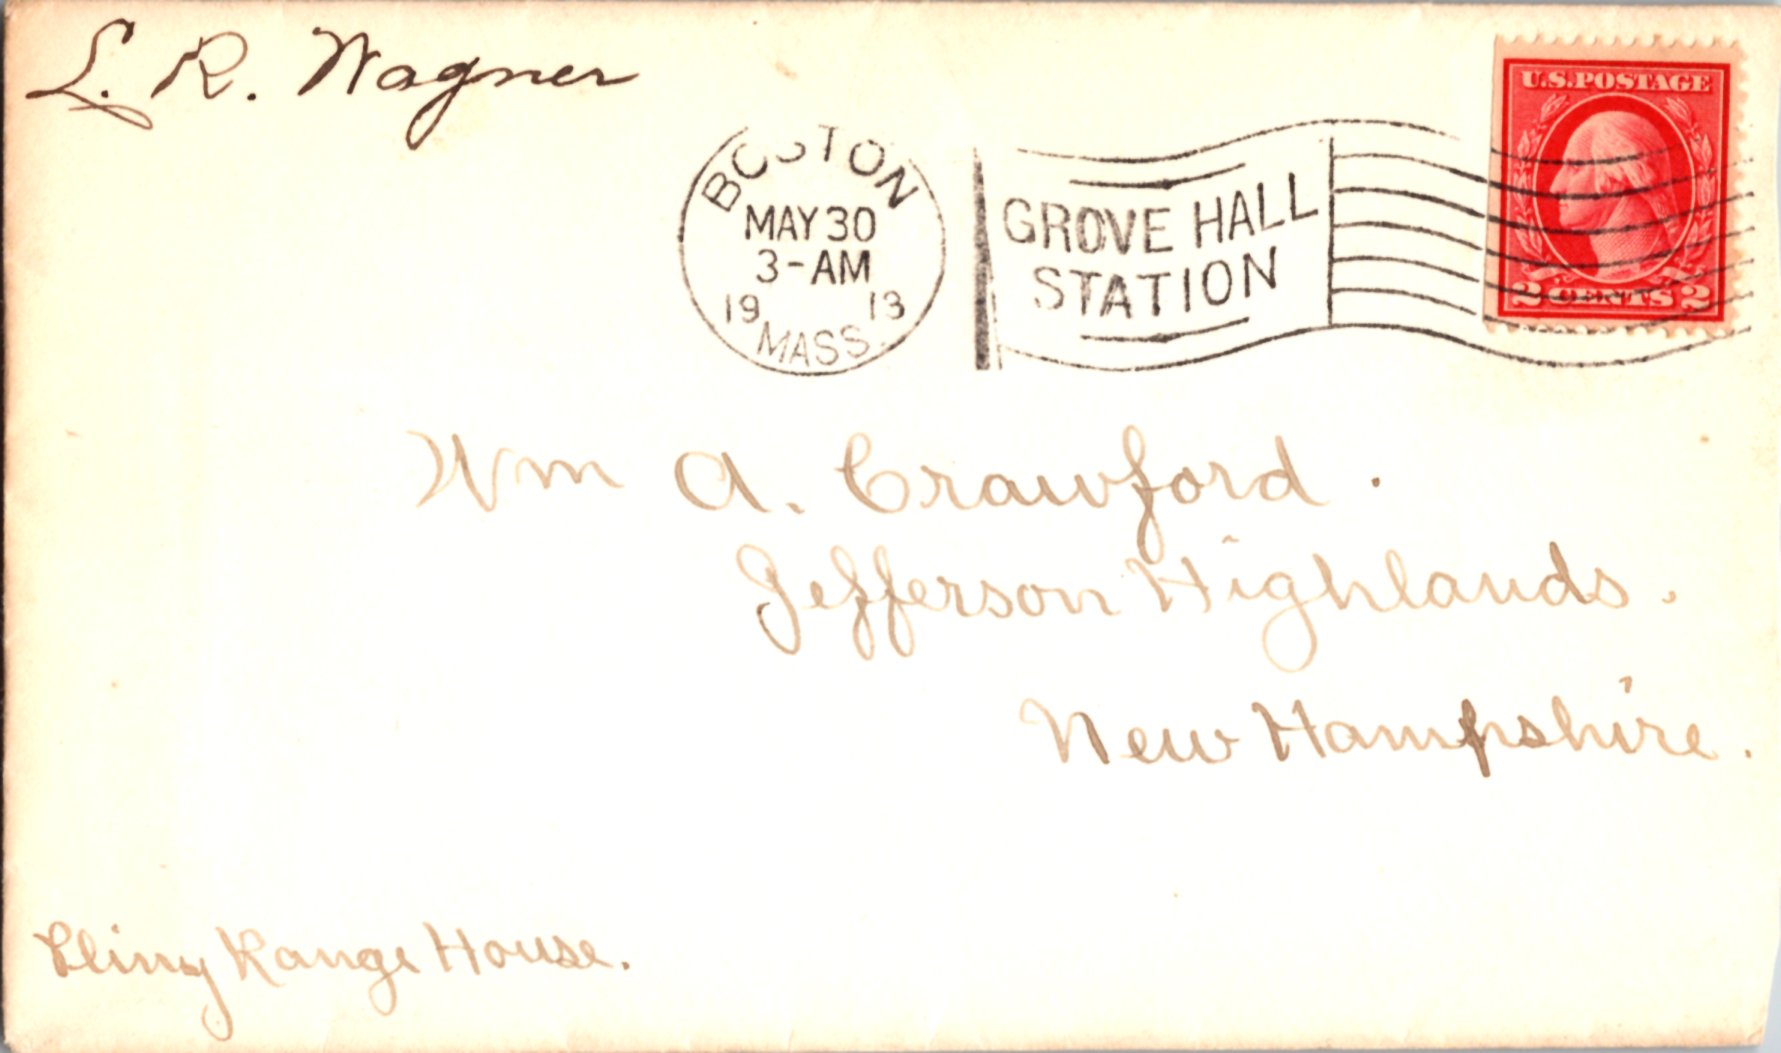 L. R. Wagner
U.S.POSTAGE
2 CENTS 2
BOSTON
MAY 30
3-AM
19 13
MASS.
GROVE HALL
STATION
Wm A. Crawford.
Jefferson Highlands.
New Hampshire.
Pliny Range House.